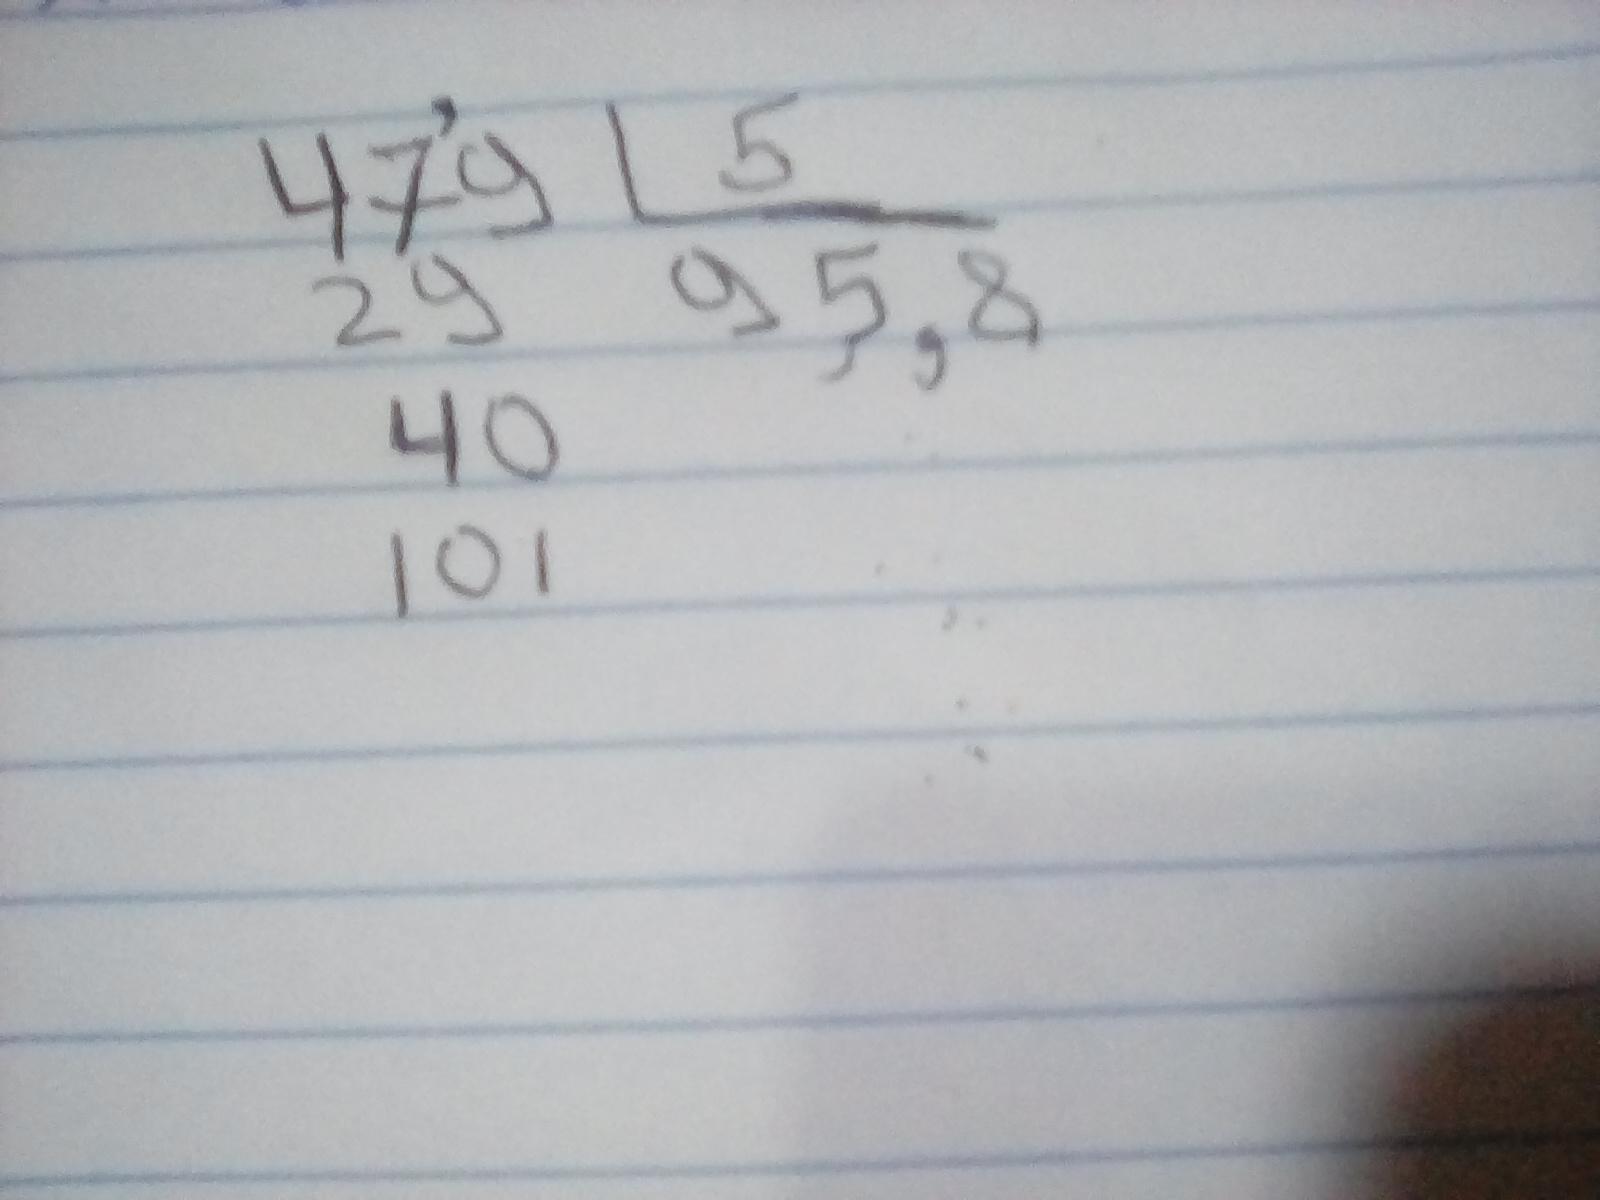 47'9 5
29 95,8
40
101